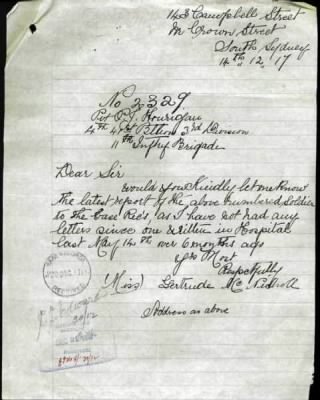 143 Campbell Street
Nr Crown Street
South Sydney
14th. 12. 17
No 3329.
Pvt P. J. Hourigan
4th 41st Bttlion 3rd Division
11th Inftry Brigade
Dear Sir
Would you Kindly let me Know
the latest report of the above numbered Soldier
to the as I have not had any
letters since one written in Hospital
last May 14th over 6 months ago
Yrs Most
Respectfully
(Miss) Gertrude
Address as above